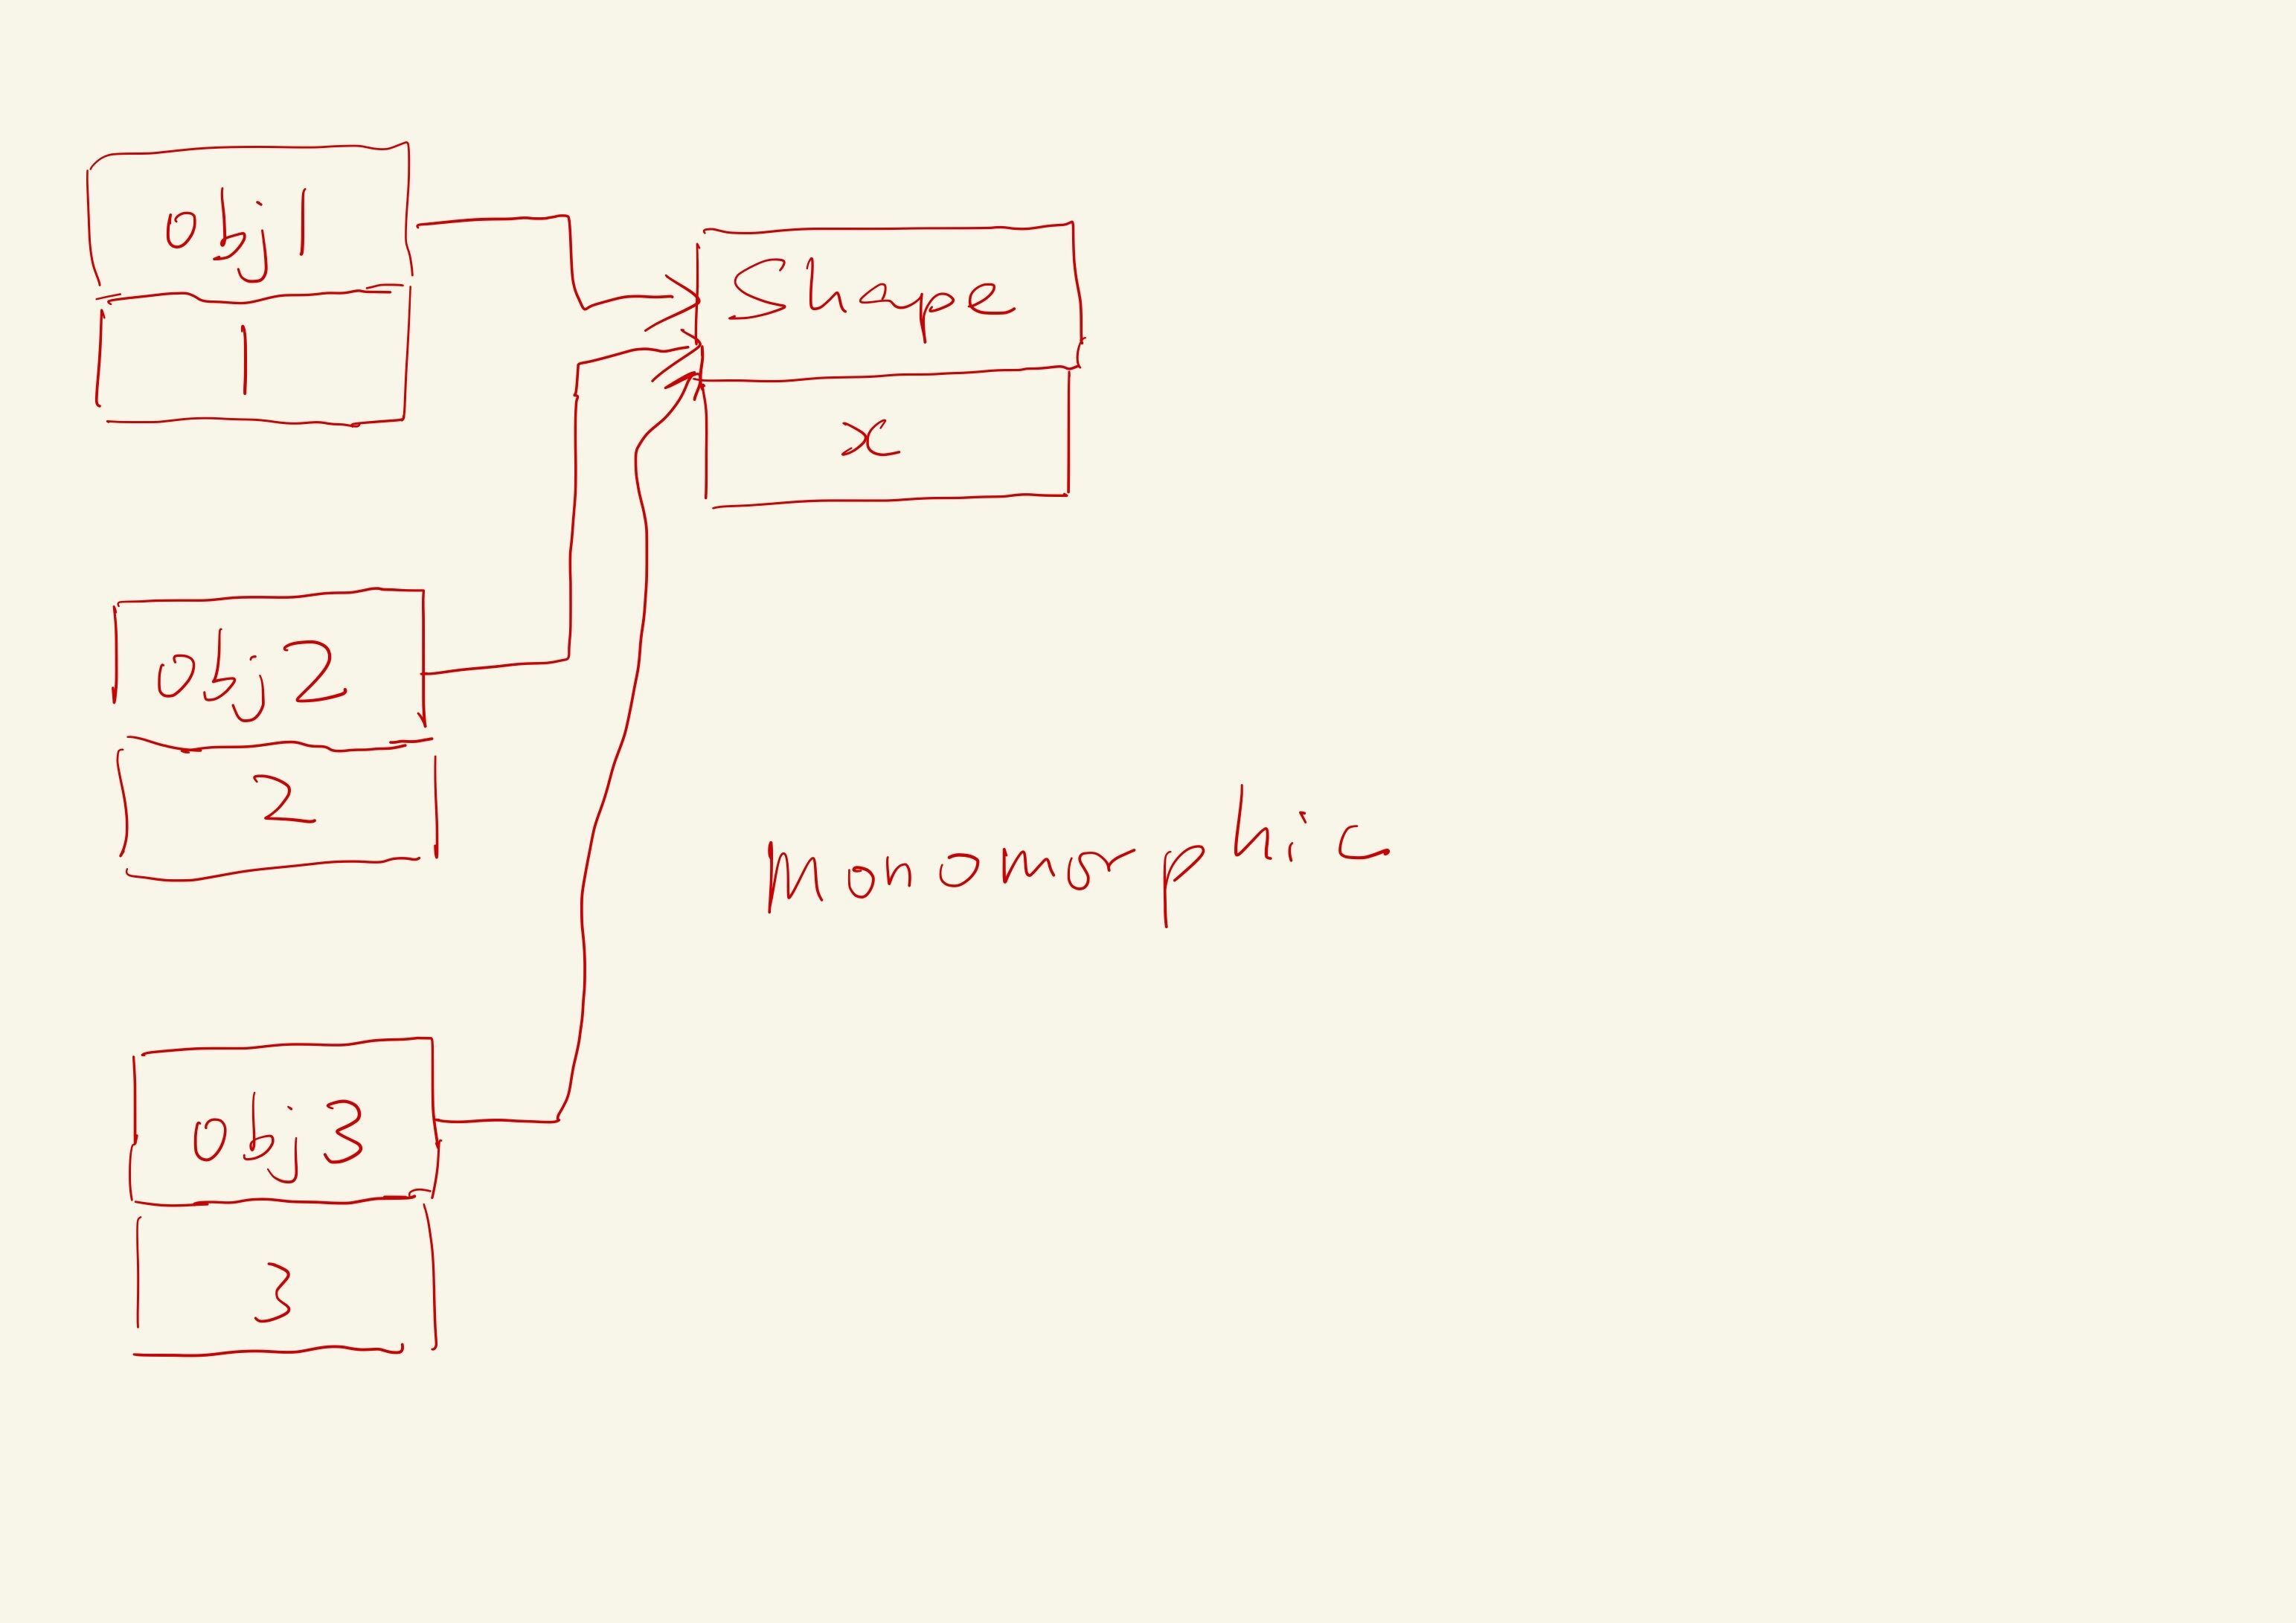 obj1
1
Shape
x
obj2
2
Monomorphic
obj3
3